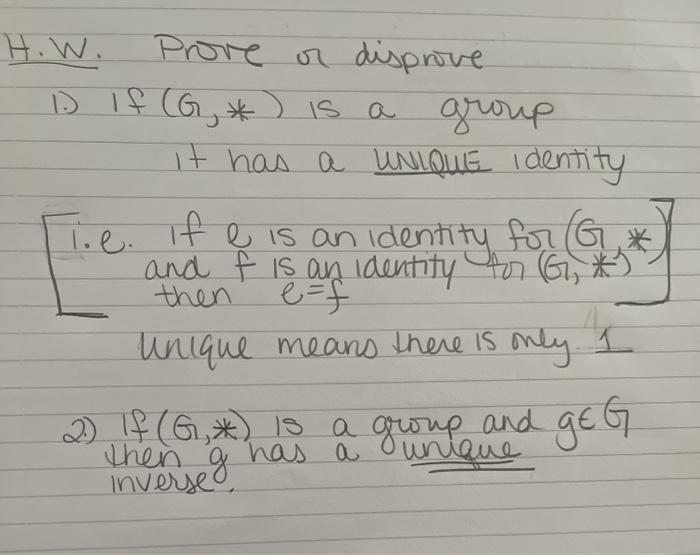 H.W. Prove or disprove
1.) If (G, *) is a group
it has a UNIQUE identity
[i.e. if e is an identity for (G, *)
and f is an identity for (G, *)
then e=f]
Unique means there is only 1
2.) If (G, *) is a group and g∈G
then g has a unique
inverse.